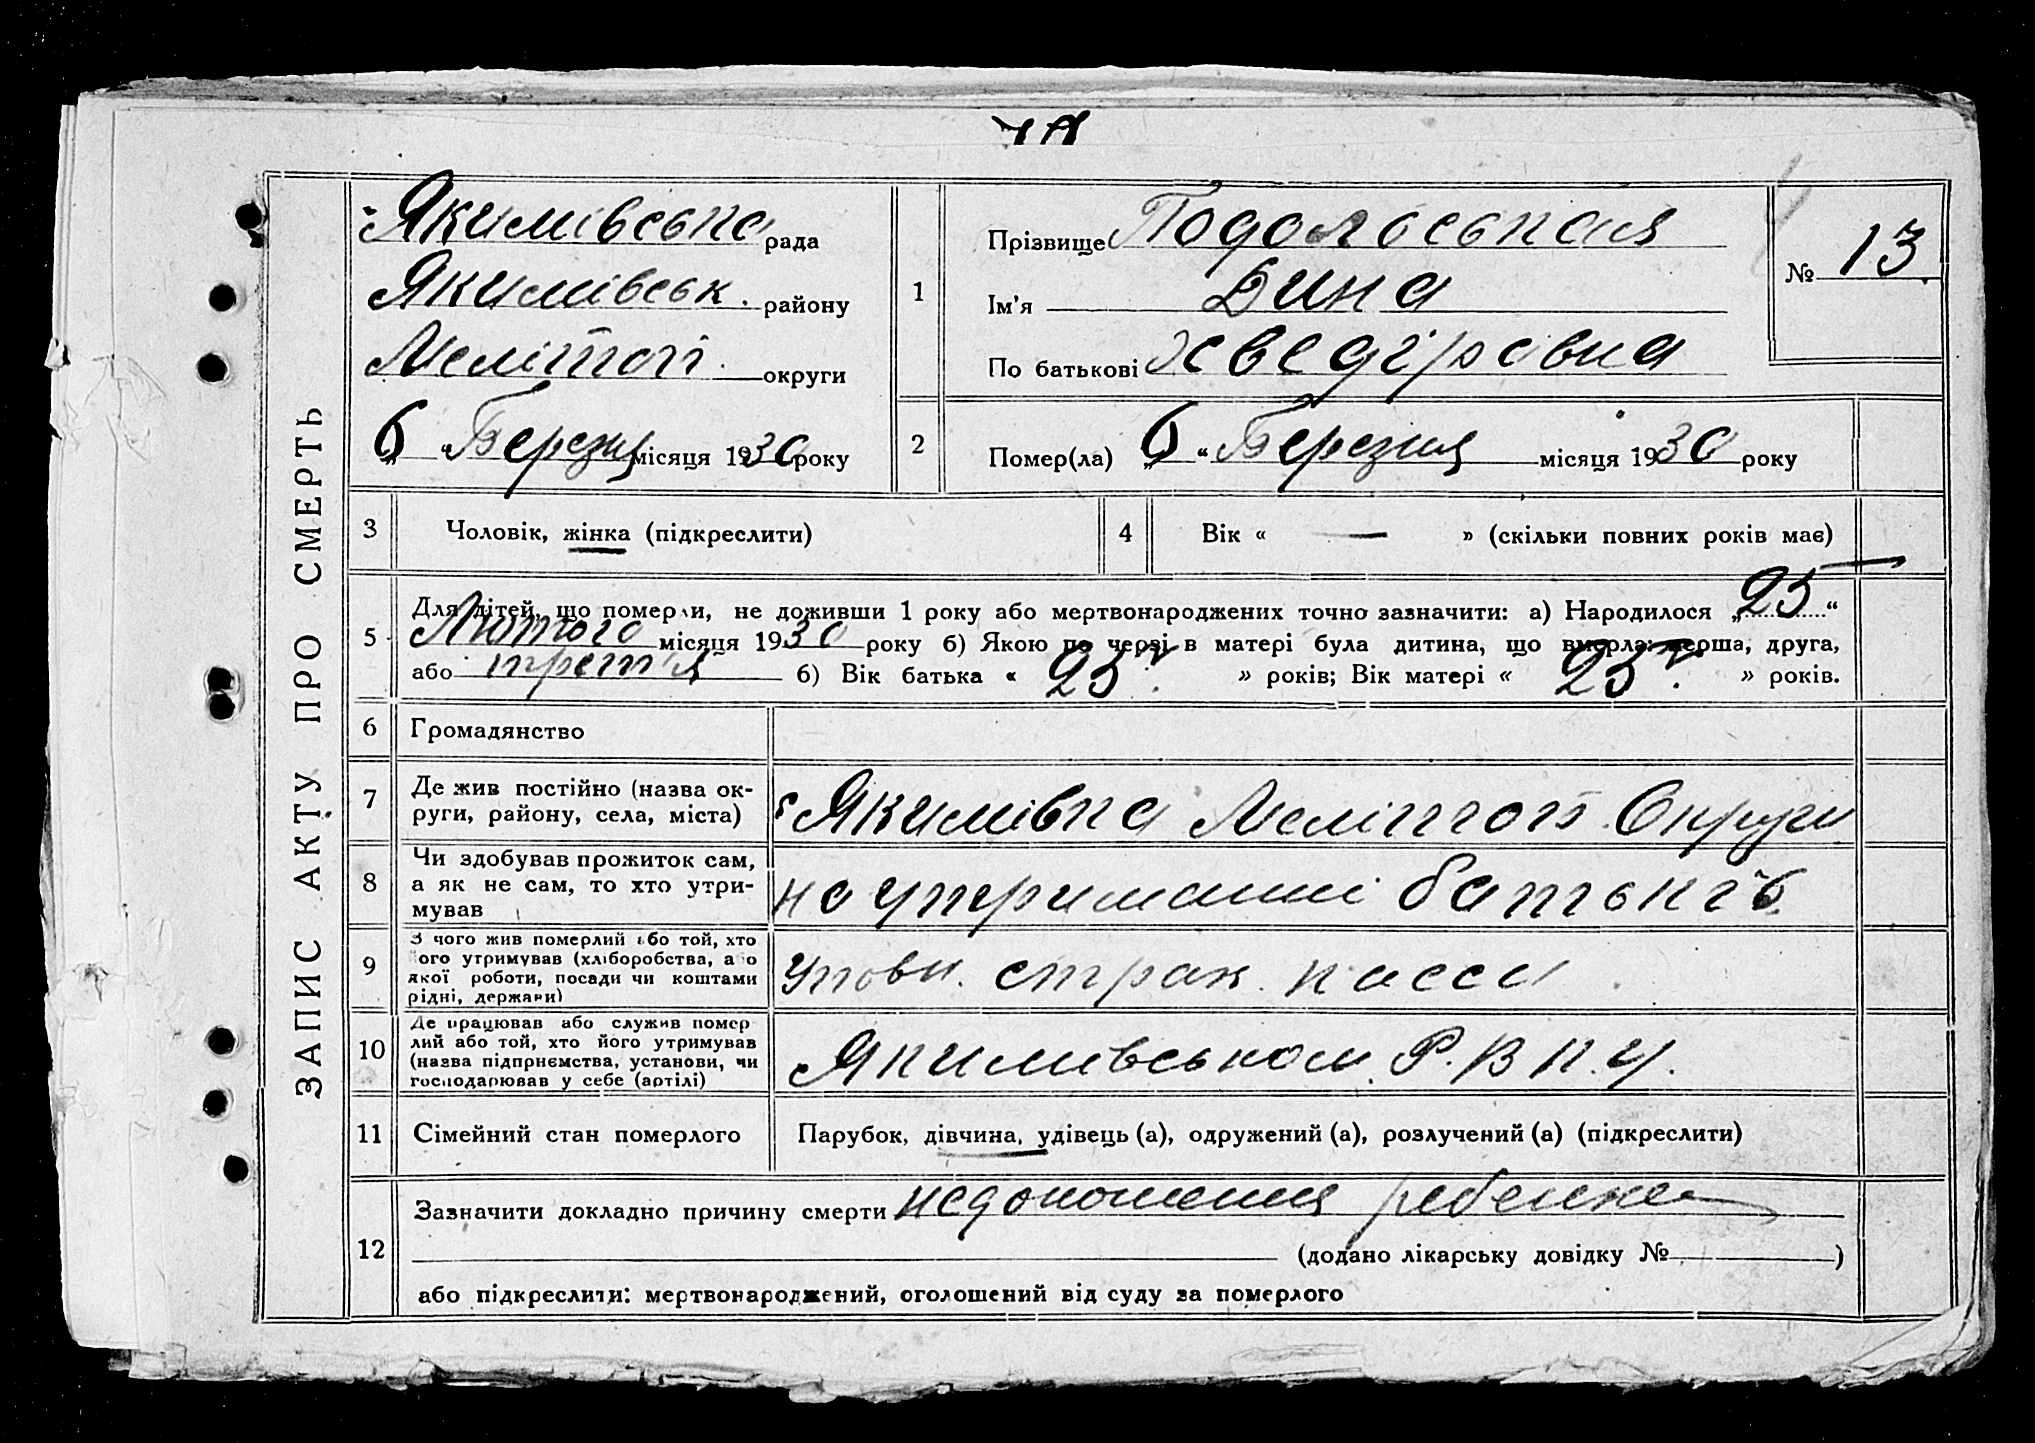 ЗАПИС АКТУ ПРО СМЕРТЬ
Якимівська рада
Якимівськ. району
Меліттоп. округи
„6“ Березня місяця 1930 року
1
Прізвище Подольськая
Ім'я Дина
По батькові
№ 13
2
Помер(ла) „6“ Березня місяця 1930 року
3 Чоловік, жінка (підкреслити)
4 Вік « — » (скільки повних років має)
5
Для дітей, що померли, не доживши 1 року або мертвонароджених точно зазначити: а) Народилося „25“
Лютого місяця 1930 року б) Якою по черзі в матері була дитина, що вмерла: перша, друга,
або третя б) Вік батька « 25 г. » років; Вік матері « 25 г. » років.
6 Громадянство
7
Де жив постійно (назва ок-
руги, району, села, міста)
с Якимівка Меліттоп. Округи
8
Чи здобував прожиток сам,
а як не сам, то хто утри-
мував
на утриманні батьків
9
З чого жив померлий або той, хто
його утримував (хліборобства, або
якої роботи, посади чи коштами
рідні, держави)
Уповн. страх. касси
10
Де працював або служив помер
лий або той, хто його утримував
(назва підприємства, установи, чи
господарював у себе (артілі)
Якимивськом Р.В.К.У.
11 Сімейний стан померлого
Парубок, дівчина, удівець (а), одружений (а), розлучений (а) (підкреслити)
12
Зазначити докладно причину смерти недоношения ребенка
(додано лікарську довідку № )
або підкреслити: мертвонароджений, оголошений від суду за померлого